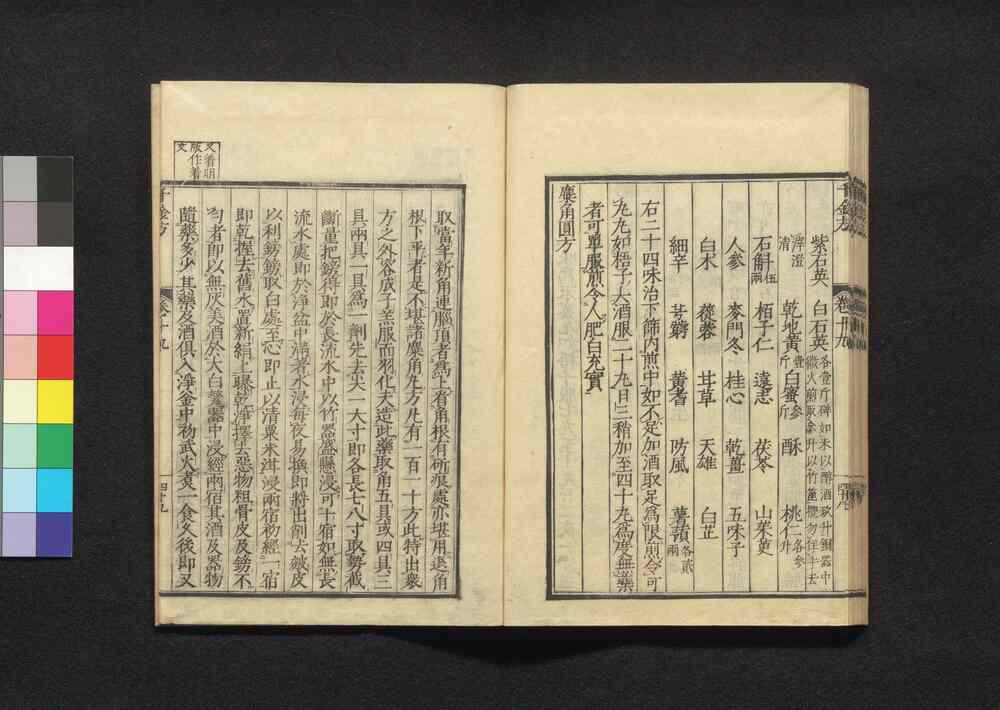 千金方 卷十九
紫石英 白石英各壹斤碎如米以醇酒玖升銅器中微火煎取叁升以竹篦攪勿住手去
滓澄清 乾地黃壹斤 白蜜叁斤 酥 桃仁各叁升
石斛伍兩 栢子仁 遠志 茯苓 山茱萸
人參 麥門冬 桂心 乾薑 五味子
白术 蓯蓉 甘草 天雄 白芷
細辛 芎藭 黃耆 防風 薯蕷各貳兩
右二十四味治下篩內煎中如不足加酒取足爲限煎令可
丸丸如梧子大酒服二十丸日三稍加至四十丸爲度無藥
者可單服煎令人肥白充實
麋角圓方
取當年新角連腦頂者爲上看角根有斫痕處亦堪用退角
根下平者是不堪諸麋角丸方凡有一百一十方此特出衆
方之外容成子羔服而羽化夫造此藥取角五具或四具三
具兩具一具爲一劑先去尖一大寸即各長七八寸取勢截
斷量把鎊得即於長流水中以竹器盛懸浸可十宿如無長
流水處即於淨盆中滿着水浸每夜易換即將出削去皴皮
以利鎊鎊取白處至心即止以清粟米泔浸兩宿初經一宿
即乾握去舊水置新絹上曝乾淨擇去惡物粗骨皮及鎊不
勻者即以無灰美酒於大白瓷器中浸經兩宿其酒及器物
隨藥多少其藥及酒俱入淨釜中初武火煮一食久後即又
又着明
版作着
文
千金方 卷十九 四十九